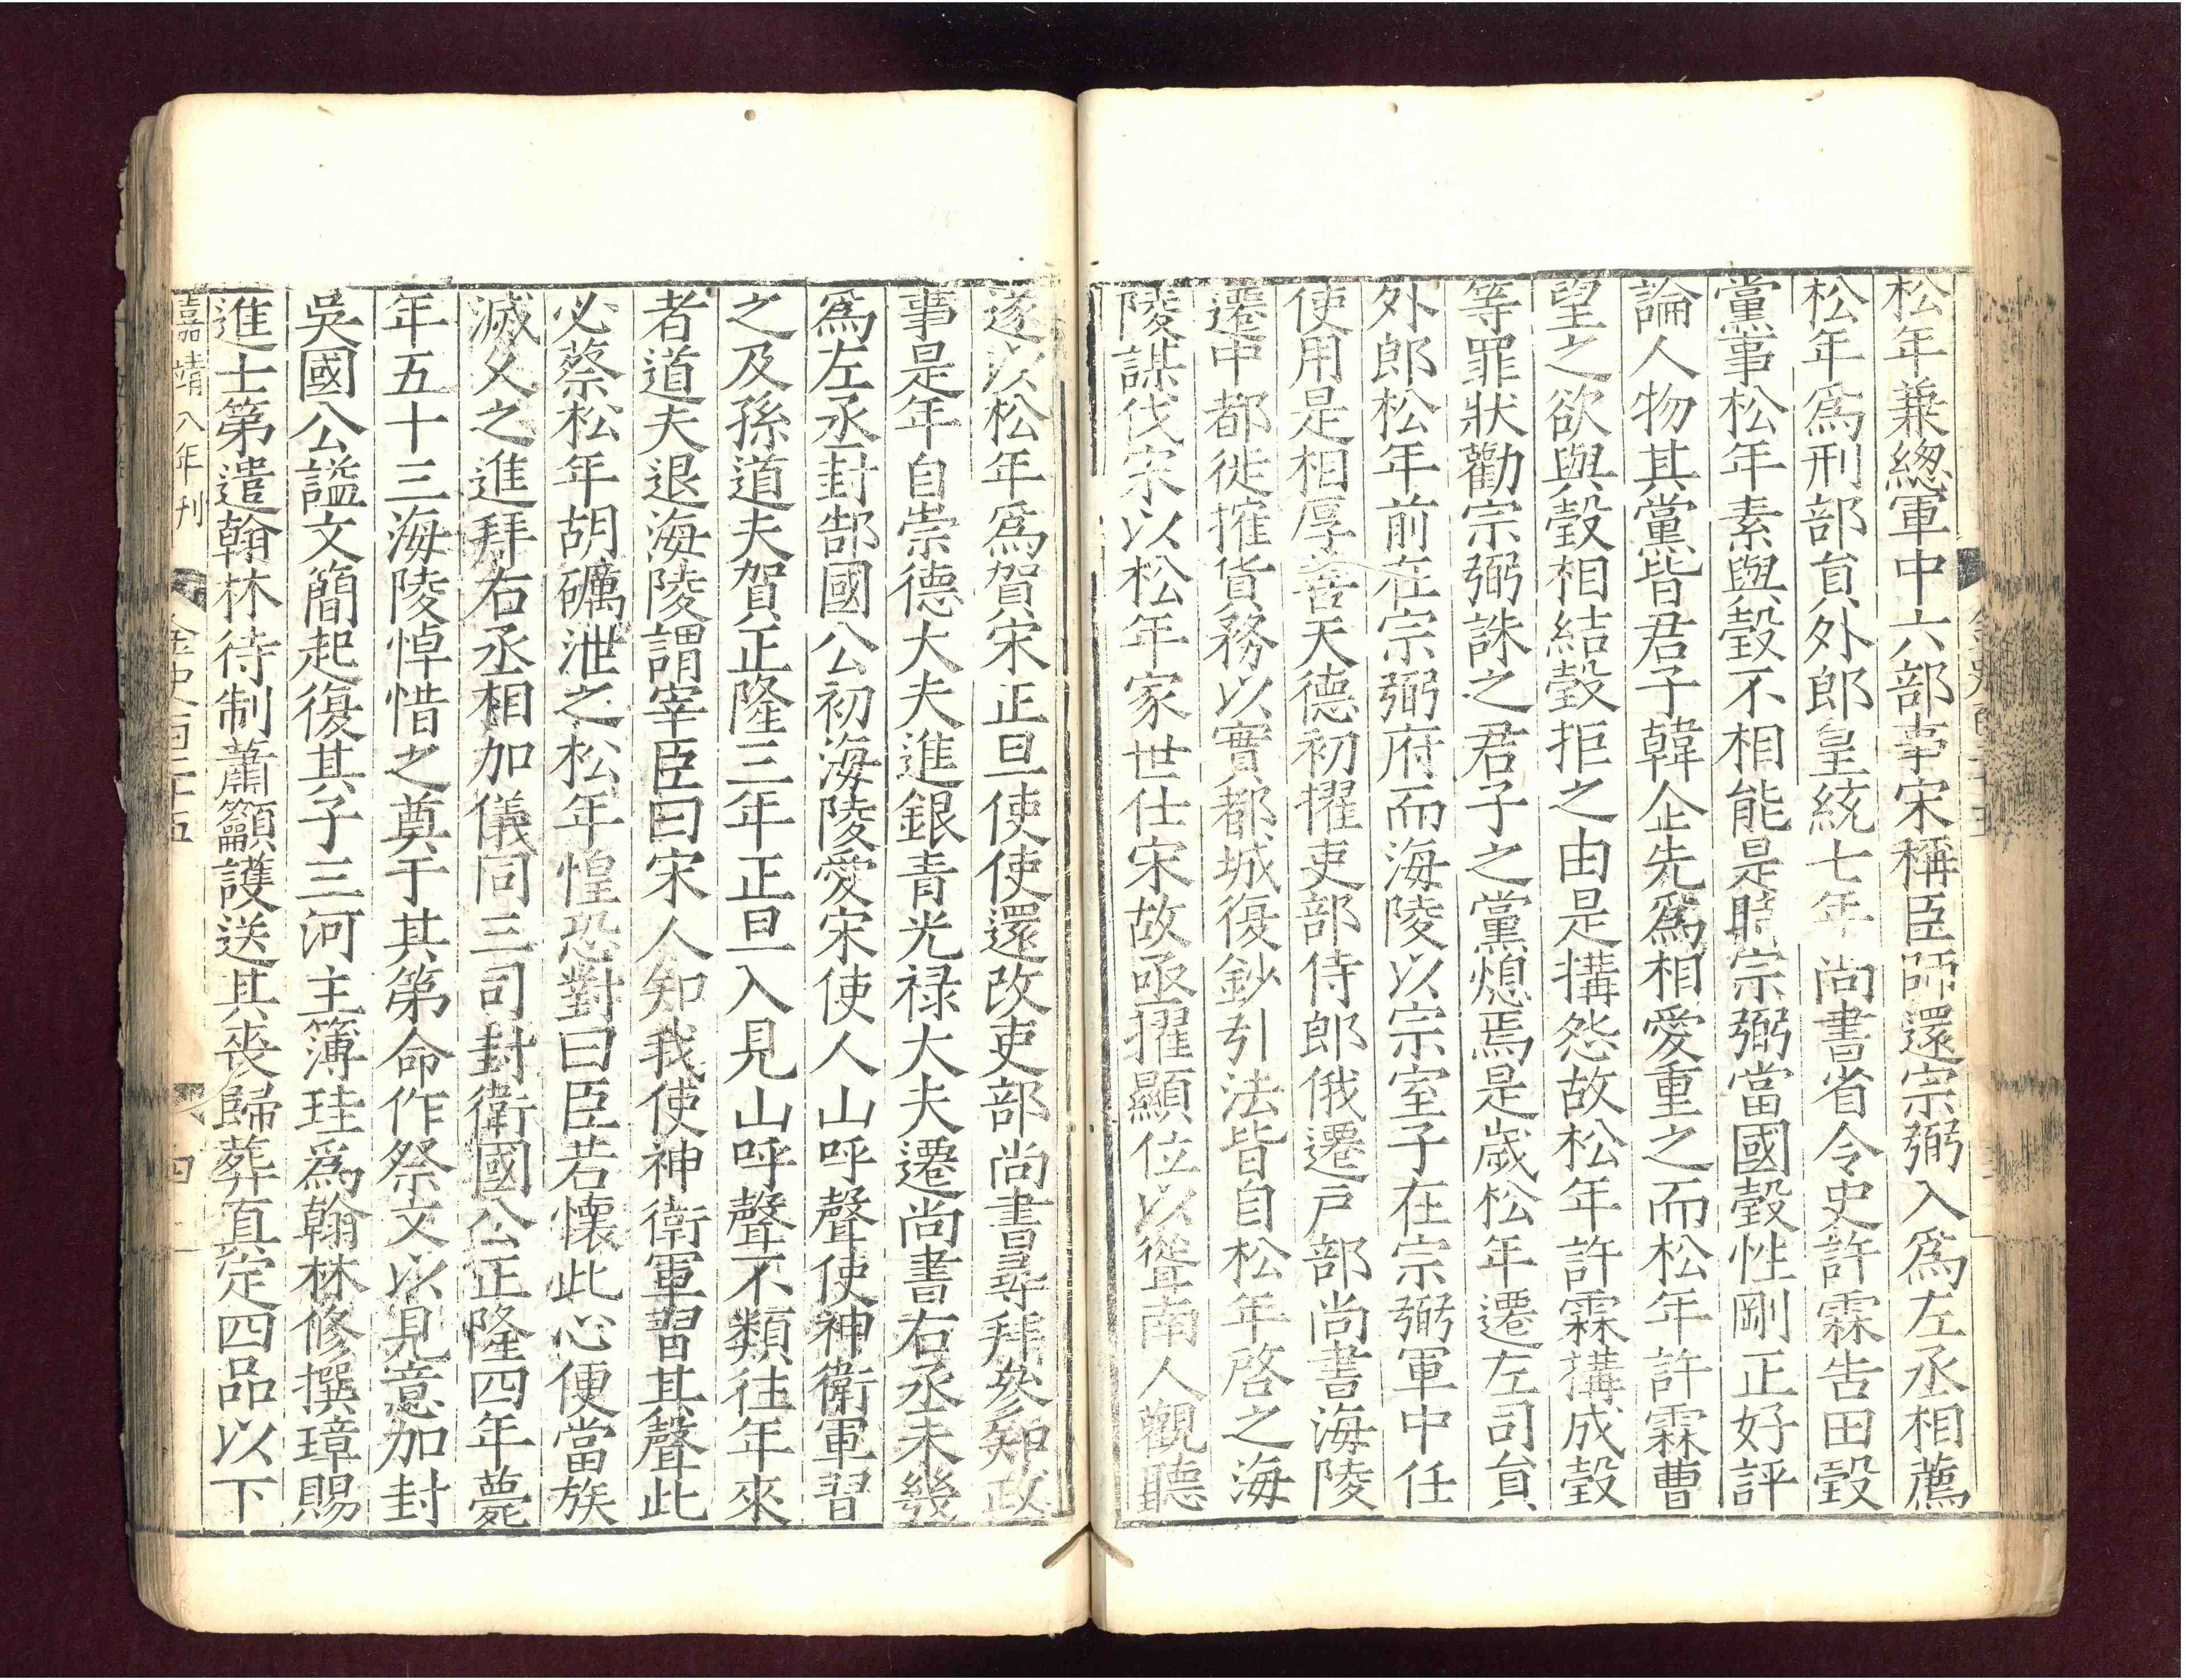 松年兼緫軍中六部事宋稱臣師還宗弼入爲左丞相薦
松年爲刑部貟外郎皇統七年尚書省令史許霖告田瑴
黨事松年素與瑴不相能是時宗弼當國瑴性剛正好評
論人物其黨皆君子韓企先爲相愛重之而松年許霖曹
望之欲與瑴相結瑴拒之由是搆怨故松年許霖搆成瑴
等罪狀勸宗弼誅之君子之黨熄焉是歲松年遷左司貟
外郎松年前在宗弼府而海陵以宗室子在宗弼軍中任
使用是相厚善天德初擢吏部侍郎俄遷戸部尚書海陵
遷中都徙搉貨務以實都城復鈔引法皆自松年啓之海
陵謀伐宋以松年家世仕宋故亟擢顯位以聳南人觀聽
遂以松年爲賀宋正旦使使還改吏部尚書尋拜參知政
事是年自崇德大夫進銀青光禄大夫遷尚書右丞未幾
爲左丞封郜國公初海陵愛宋使人山呼聲使神衛軍習
之及孫道夫賀正隆三年正旦入見山呼聲不類往年來
者道夫退海陵謂宰臣曰宋人知我使神衛軍習其聲此
必蔡松年胡礪泄之松年惶恐對曰臣若懷此心便當族
滅久之進拜右丞相加儀同三司封衛國公正隆四年薨
年五十三海陵悼惜之奠于其第命作祭文以見意加封
吳國公謚文簡起復其子三河主簿珪爲翰林修撰璋賜
進士第遣翰林待制蕭籲護送其喪歸葬真定四品以下
嘉靖八年刊 金史百二十五 四